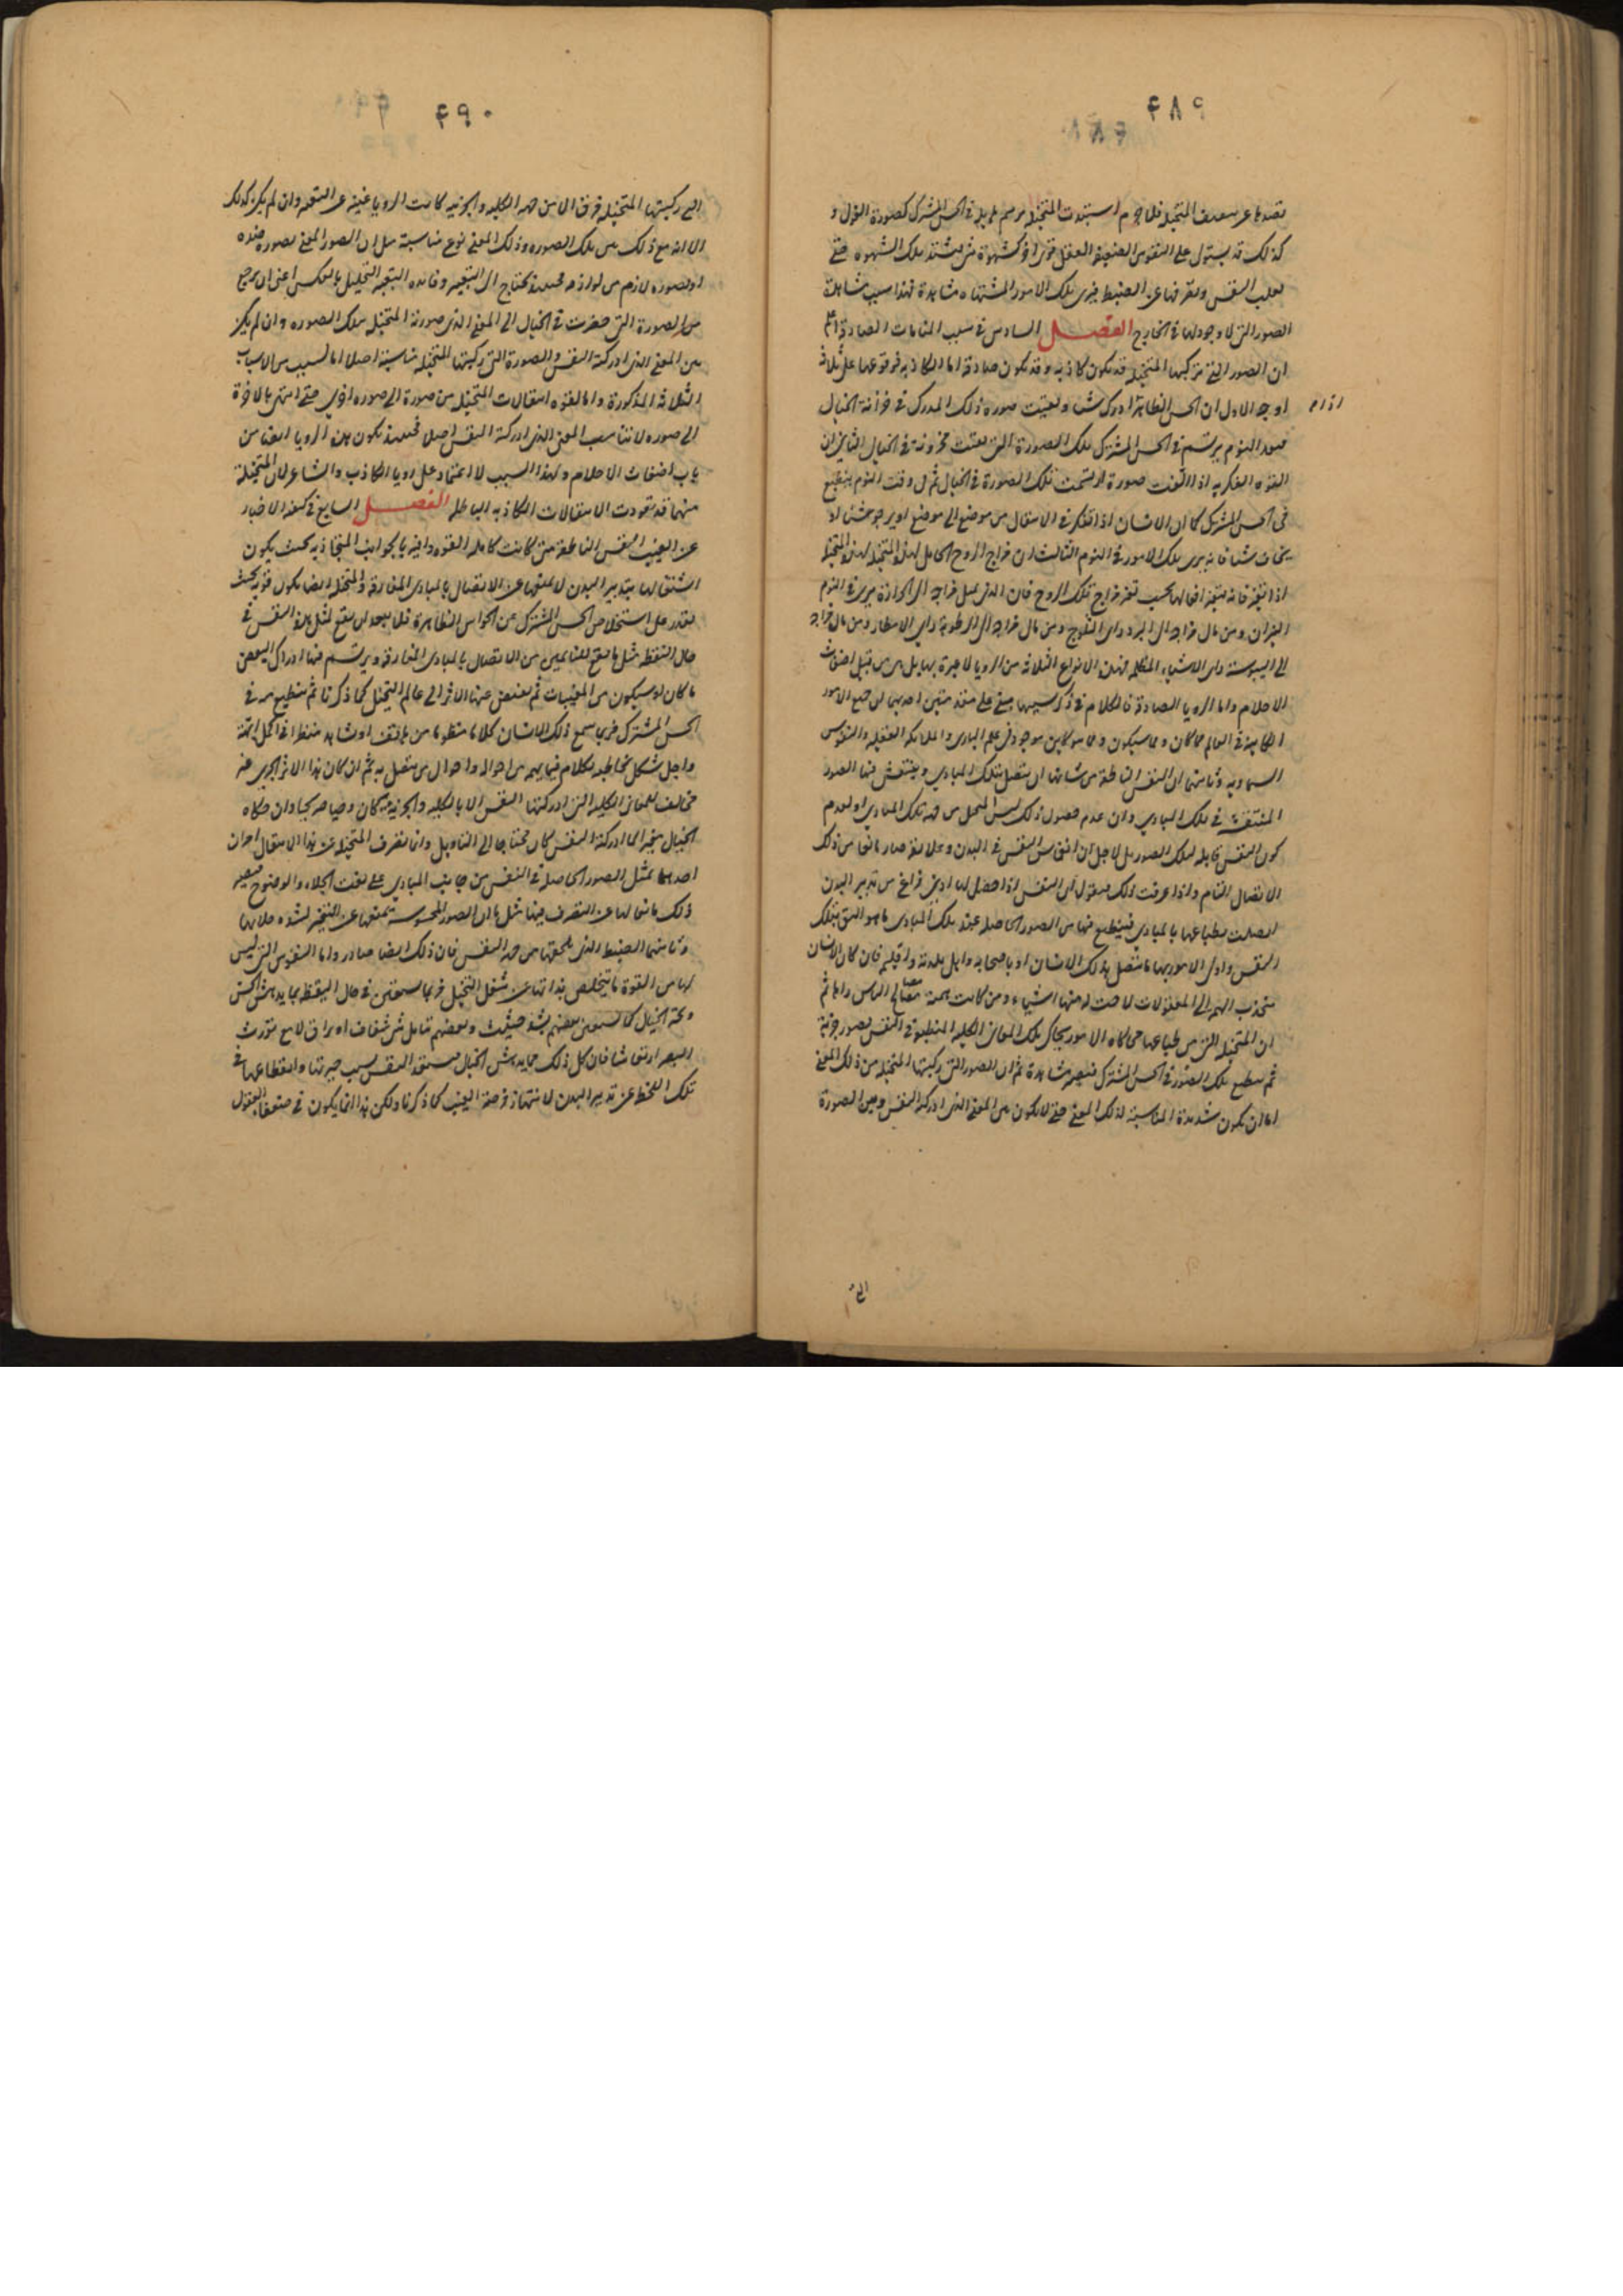 ۴۸۹
كذلك قد يستولى على النفوس الضعيفة العقل قوى اخر كشهوة شئ يشتد تلك الشهوة حتى
يغلب النفس ويصرفها عن الضبط فيرى تلك الامور المشتهاة مشاهدة فهذا سبب مشاهدة
الصور التى لا وجود لها فى الخارج الفصل السادس فى سبب المنامات الصادقة اعلم
ان الصور التى تركبها المتخيلة قد تكون كاذبة وقد تكون صادقة اما الكاذبة فوقوعها على ثلاثة
اوجه الاول ان الحس الظاهر اذا ادرك شيئا وبقيت صورة ذلك المدرك فى خزانة الخيال
فعند النوم يرتسم فى الحس المشترك تلك الصورة التى بقيت مخزونة فى الخيال الثانى ان
القوة الفكرية اذا الفت صورة ارتسمت تلك الصورة فى الخيال ثم وقت النوم ينطبع
فى الحس المشترك كما ان الانسان اذا تفكر فى الانتقال من موضع الى موضع او يرجو شيئا او
يخاف شيئا فانه يرى تلك الامور فى النوم الثالث ان مزاج الروح الحامل لهذه المتخيلة
اذا تغير فانه يتغير افعالها بحسب تغير مزاج تلك الروح فان الذى يميل مزاجه الى الحرارة يرى فى النوم
النيران ومن مال مزاجه الى البرد راى الثلوج ومن مال مزاجه الى الرطوبة راى الامطار ومن مال مزاجه
الى اليبوسة راى الاشياء المظلمة فهذه الانواع الثلاثة من الرويا لا عبرة بها بل هى من قبيل اضغاث
الاحلام واما الرويا الصادقة فالكلام فى ذكر سببها مبنى على مقدمتين احديهما ان جميع الامور
الكاينة فى العالم مما كان ومما سيكون ومما هو كاين موجود فى علم البارى والملايكة العقلية والنفوس
السماوية وثانيتهما ان النفس الناطقة من شانها ان يتصل بتلك المبادى وينتقش فيها الصور
المنتقشة فى تلك المبادى وان عدم حصول ذلك ليس لبخل من جهة تلك المبادى او لعدم
كون النفس قابلة لتلك الصور بل لاجل ان انغماس النفس فى البدن وعلايقه صار مانعا من ذلك
الاتصال التام واذا عرفت ذلك فنقول ان النفس اذا حصل لها ادنى فراغ من تدبير البدن
اتصلت بطباعها بالمبادى فينطبع فيها من الصور الحاصلة عند تلك المبادى ما هو اليق بتلك
النفس واولى الامور بها ما يتصل بذلك الانسان او باصحابه واهل بلدته واقليمه فان كان الانسان
منجذب الهمة الى المعقولات لاحت له منها اشياء ومن كانت همته مصالح الناس راها ثم
ان المتخيلة التى من طباعها محاكاة الامور يحاكى تلك المعانى الكلية المنطبعة فى النفس بصور جزئية
ثم ينطبع تلك الصور فى الحس المشترك فتصير مشاهدة ثم ان الصور التى ركبتها المتخيلة من ذلك المعنى
اما ان يكون شديدة المناسبة لذلك المعنى حتى لا يكون بين المعنى الذى ادركه النفس وبين الصورة
۴۹۰
التى ركبتها المتخيلة فرق الا من جهة الكلية والجزئية كانت الرويا غنية عن التعبير وان لم يكن كذلك
الا انه مع ذلك بين تلك الصورة وذلك المعنى نوع مناسبة مثل ان الصور المعنى بصورة ضده
او بصورة لازم من لوازمه فحينئذ يحتاج الى التعبير وفايدة التعبير التحليل بالعكس اعنى ان يرجع
من الصورة التى حضرت فى الخيال الى المعنى الذى صورته المتخيلة بتلك الصورة وان لم يكن
بين المعنى الذى ادركته النفس والصورة التى ركبتها المتخيلة مناسبة اصلا اما لسبب من الاسباب
الثلاثة المذكورة واما لقوة انتقالات المتخيلة من صورة الى صورة اخرى حتى انتهى بالاخرة
الى صورة لا تناسب المعنى الذى ادركته النفس اصلا فحينئذ يكون هذه الرويا ايضا من
باب اضغاث الاحلام ولهذا السبب لا اعتماد على رويا الكاذب والشاعر لان المتخيلة
منهما قد تعودت الانتقالات الكاذبة الباطلة الفصل السابع فى كيفية الاخبار
عن الغيب النفس الناطقة متى كانت كاملة القوة وافية بالجوانب المتجاذبة بحيث يكون
اشتغالها بتدبير البدن لا يمنعها عن الاتصال بالمبادى المفارقة والمتخيلة ايضا يكون قوية بحيث
تقدر على استخلاص الحس المشترك عن الحواس الظاهرة فلا يبعد ان يقع لمثل هذه النفس فى
حال اليقظة مثل ما يقع للنايمين من الاتصال بالمبادى المفارقة ويرتسم فيها ادراك البعض
ما كان او سيكون من المغيبات ثم يفيض عنها الاثر الى عالم التخيل كما ذكرنا ثم ينطبع فى
الحس المشترك فربما سمع ذلك الانسان كلاما منظوما من هاتف او شاهد منظرا فى اكمل هيئة
واجل شكل يخاطبه بكلام فيما يهمه من احواله واحوال من يتصل به ثم ان كان هذا الاثر الجزئى غير
مخالف للمعانى الكلية التى ادركتها النفس الا بالكلية والجزئية كان وحيا صريحا وان حكاه
الخيال بغير ما ادركته النفس كان محتاجا الى التاويل وانما تصرف المتخيلة عن هذا الانتقال امران
احدهما تمثل الصور الحاصلة فى النفس من جانب المبادى على نعت الجلاء والوضوح فيصير
ذلك مانعا لها عن التصرف فيها مثل ما ان الصور المحسوسة تمنعها عن التغير لشدة جلائها
وثانيهما الضبط الذى يلحقها من جهة النفس فان ذلك ايضا صادر واما النفوس التى ليس
لها من القوة ما يتخلص بذاتها عن شغل التخيل فربما يستعين فى حال اليقظة بما يدهش الحس
ويحير الخيال كما يستعين بعضهم بشد حثيث وبعضهم بتامل شئ شفاف او براق لامع يورث
البصر ارتعاشا فان كل ذلك مما يدهش الخيال فيستعد النفس بسبب حيرتها وانقطاعها فى
تلك اللحظة عن تدبير البدن لانتهاز فرصة الغيب كما ذكرنا ولكن هذا انما يكون فى ضعفاء العقول